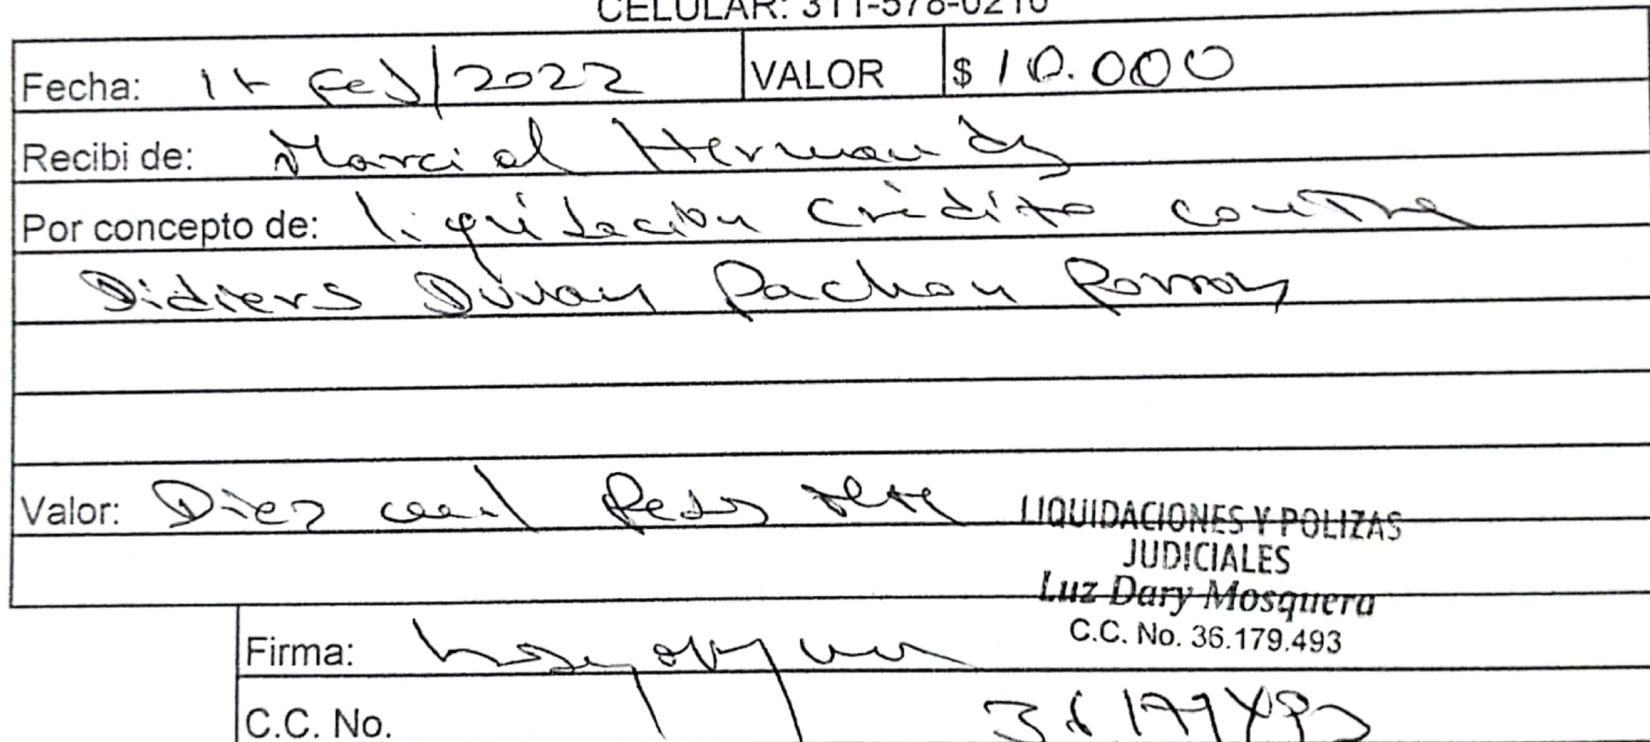 CELULAR: 311-578-0210
Fecha: Feb/2022 VALOR $ 10.000
Recibi de: Marcial Hernandez
Por concepto de: liquidación crédito contra
Didiers Duvan Pachon
Valor: Diez mil Pesos mcte
LIQUIDACIONES Y POLIZAS
JUDICIALES
Luz Dary Mosquera
C.C. No. 36.179.493
Firma:
C.C. No. 36179493